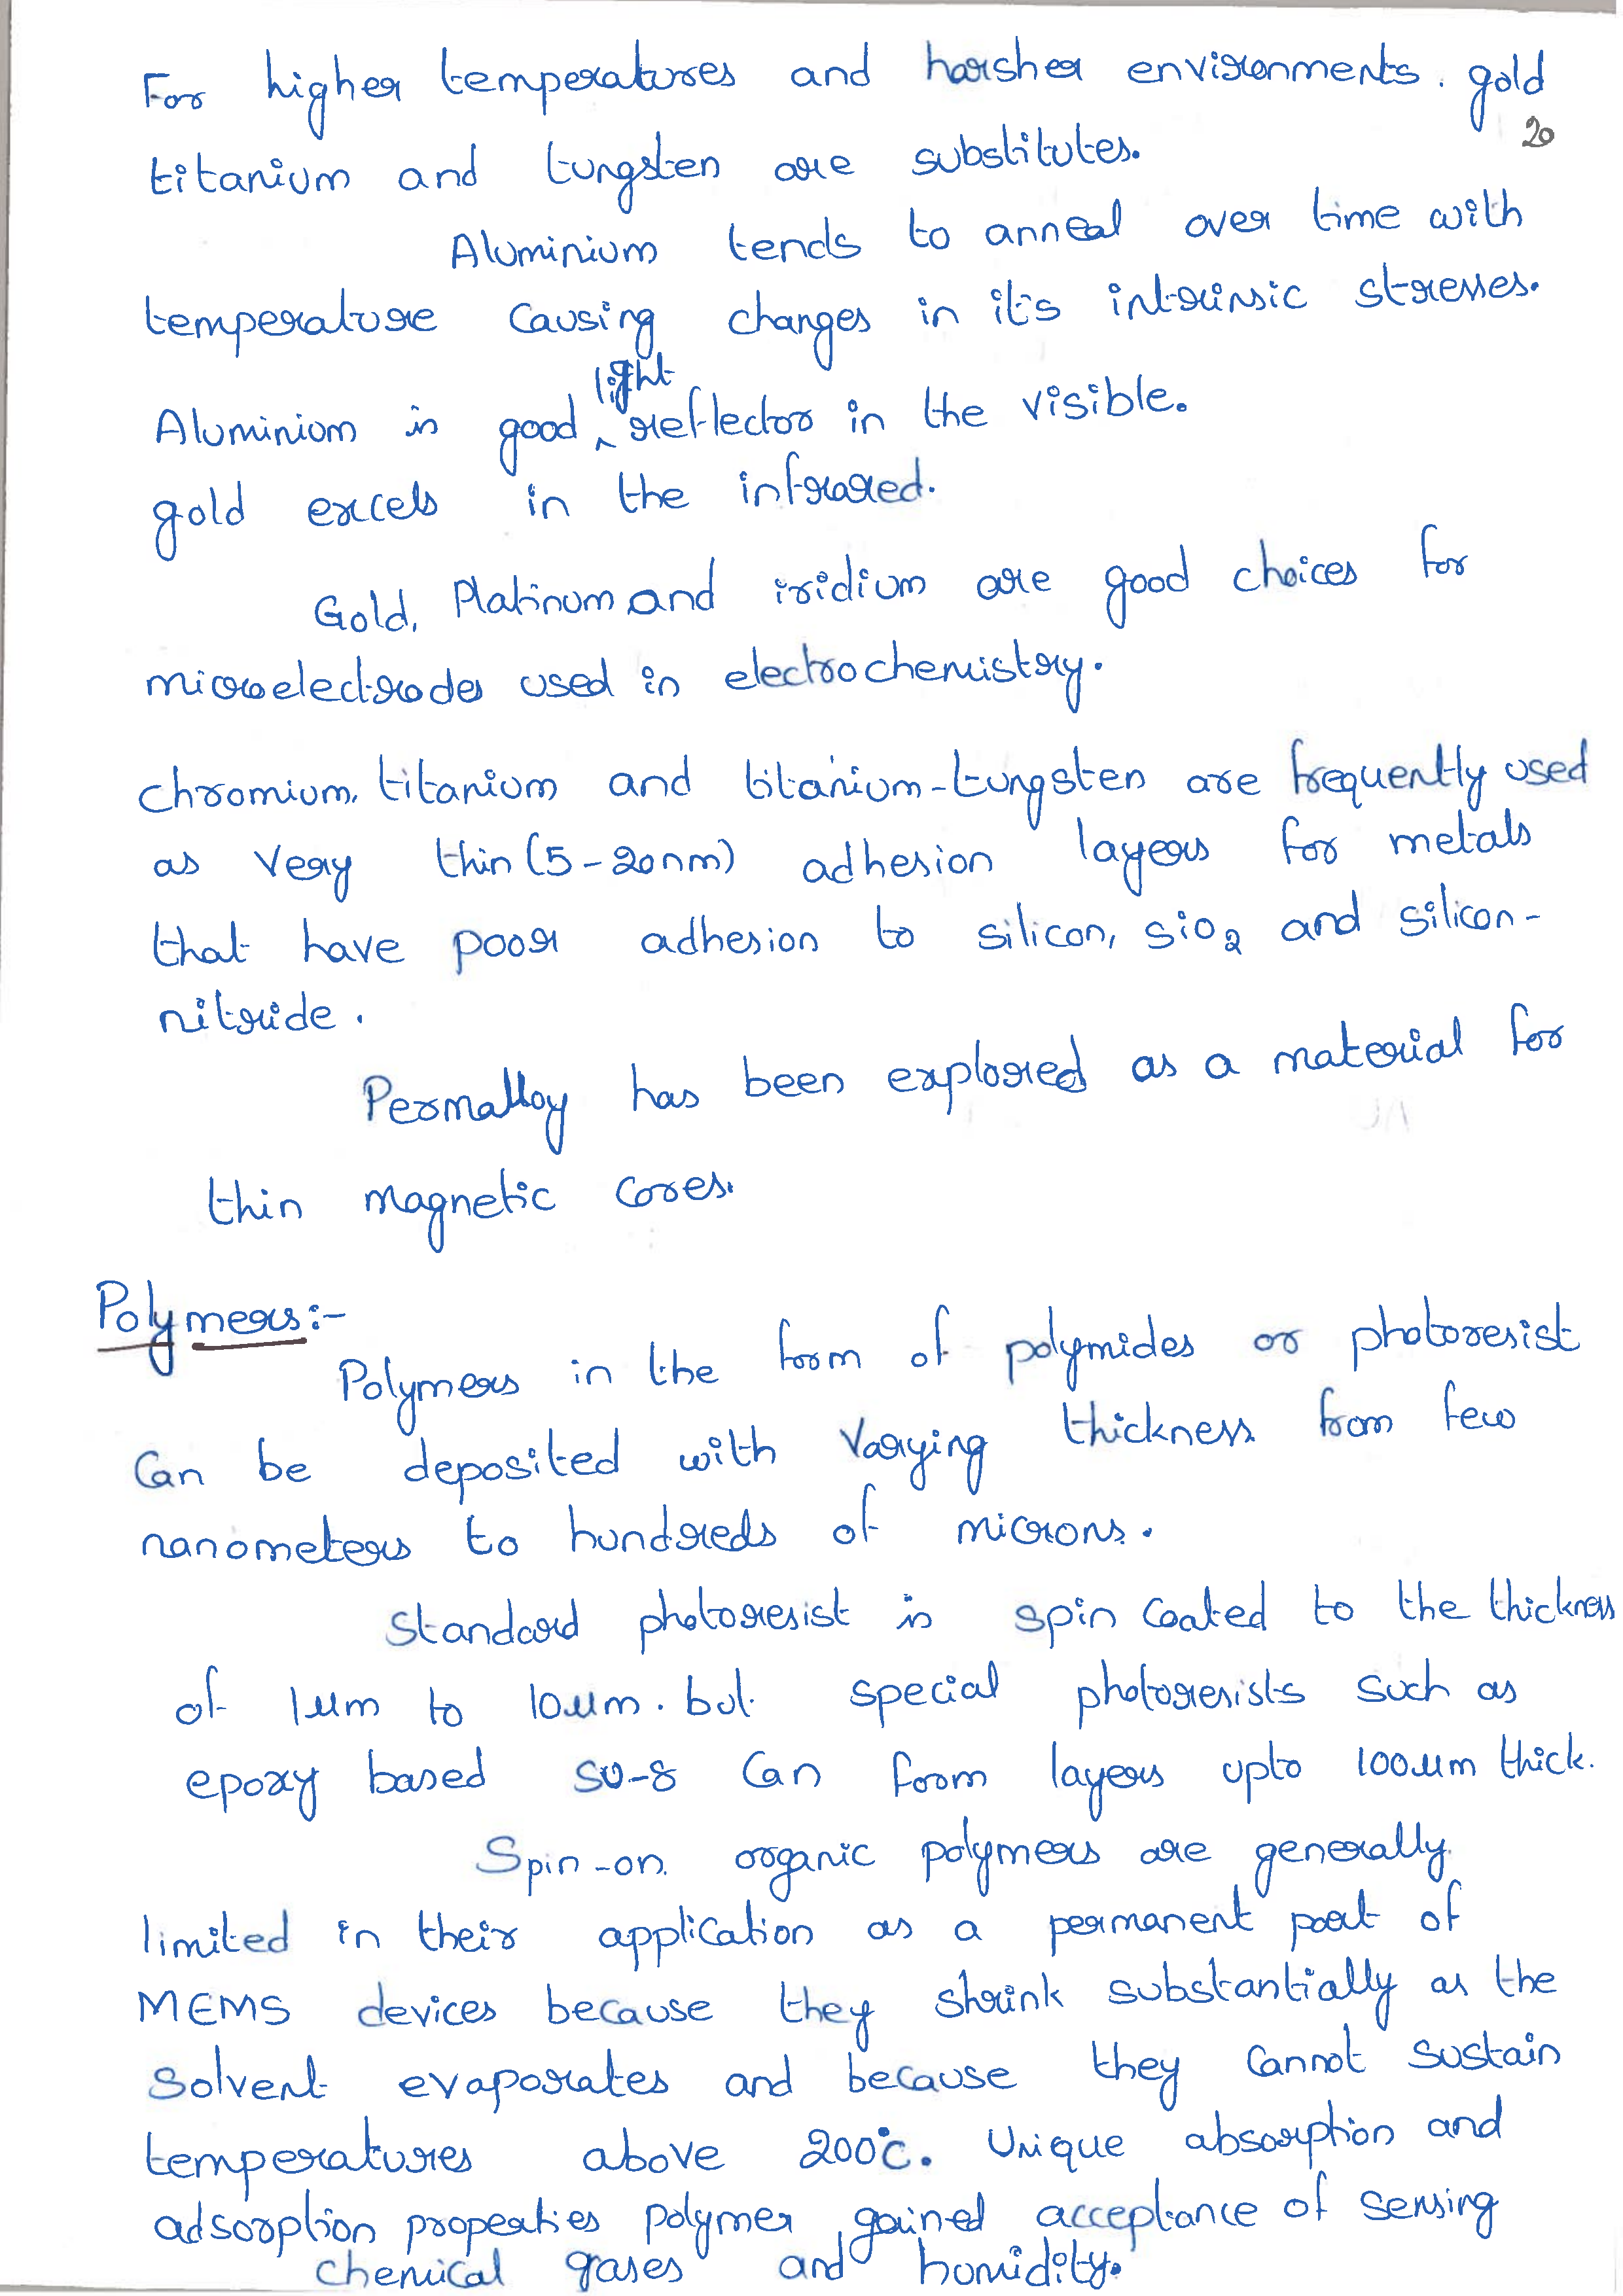 For higher temperatures and harsher environments. gold
20
titanium and tungsten are substitutes.
Aluminium tends to anneal over time with
temperature causing changes in it's intrinsic stresses.
light
Aluminium is good ^ reflector in the visible.
gold excels in the infrared.
Gold, Platinum and iridium are good choices for
microelectrodes used in electrochemistry.
chromium, titanium and titanium-tungsten are frequently used
as very thin (5-20nm) adhesion layers for metals
that have poor adhesion to silicon, SiO2 and silicon-
nitride.
Permalloy has been explored as a material for
thin magnetic cores.
Polymers:-
Polymers in the form of polymides or photoresist
Can be deposited with Varying thickness from few
nanometers to hundreds of microns.
Standard photoresist is spin coated to the thickness
of 1µm to 10µm. but special photoresists such as
epoxy based SU-8 Can form layers upto 100µm thick.
Spin-on organic polymers are generally
limited in their application as a permanent part of
MEMS devices because they shrink substantially as the
Solvent evaporates and because they Cannot sustain
temperatures above 200°c. Unique absorption and
adsorption properties polymer gained acceptance of sensing
chemical gases and humidity.